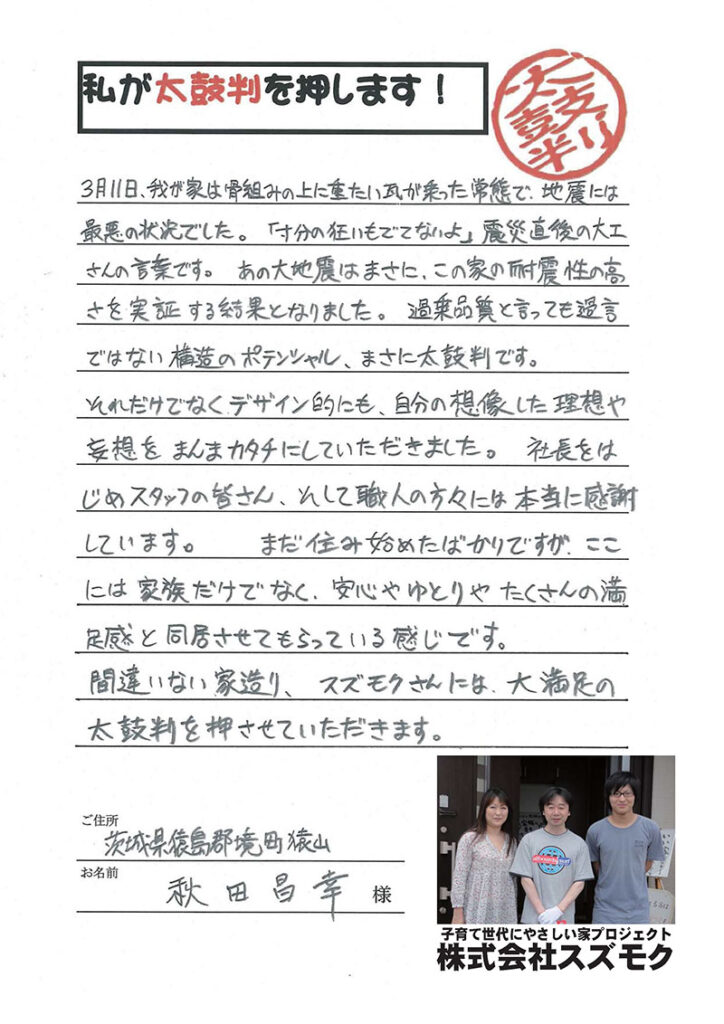 私が太鼓判を押します！
太鼓判
3月11日、我が家は骨組みの上に重たい瓦が乗った常態で、地震には
最悪の状況でした。「寸分の狂いもでてないよ」震災直後の大工
さんの言葉です。 あの大地震はまさに、この家の耐震性の高
さを実証する結果となりました。 過乗品質と言っても過言
ではない構造のポテンシャル、まさに太鼓判です。
それだけでなくデザイン的にも、自分の想像した理想や
妄想をまんまカタチにしていただきました。 社長をは
じめスタッフの皆さん、そして職人の方々には本当に感謝
しています。 まだ住み始めたばかりですが、ここ
には家族だけでなく、安心やゆとりやたくさんの満
足感と同居させてもらっている感じです。
間違いない家造り、スズモクさんには、大満足の
太鼓判を押させていただきます。
ご住所
茨城県猿島郡境町猿山
お名前
秋田昌幸 様
子育て世代にやさしい家プロジェクト
株式会社スズモク